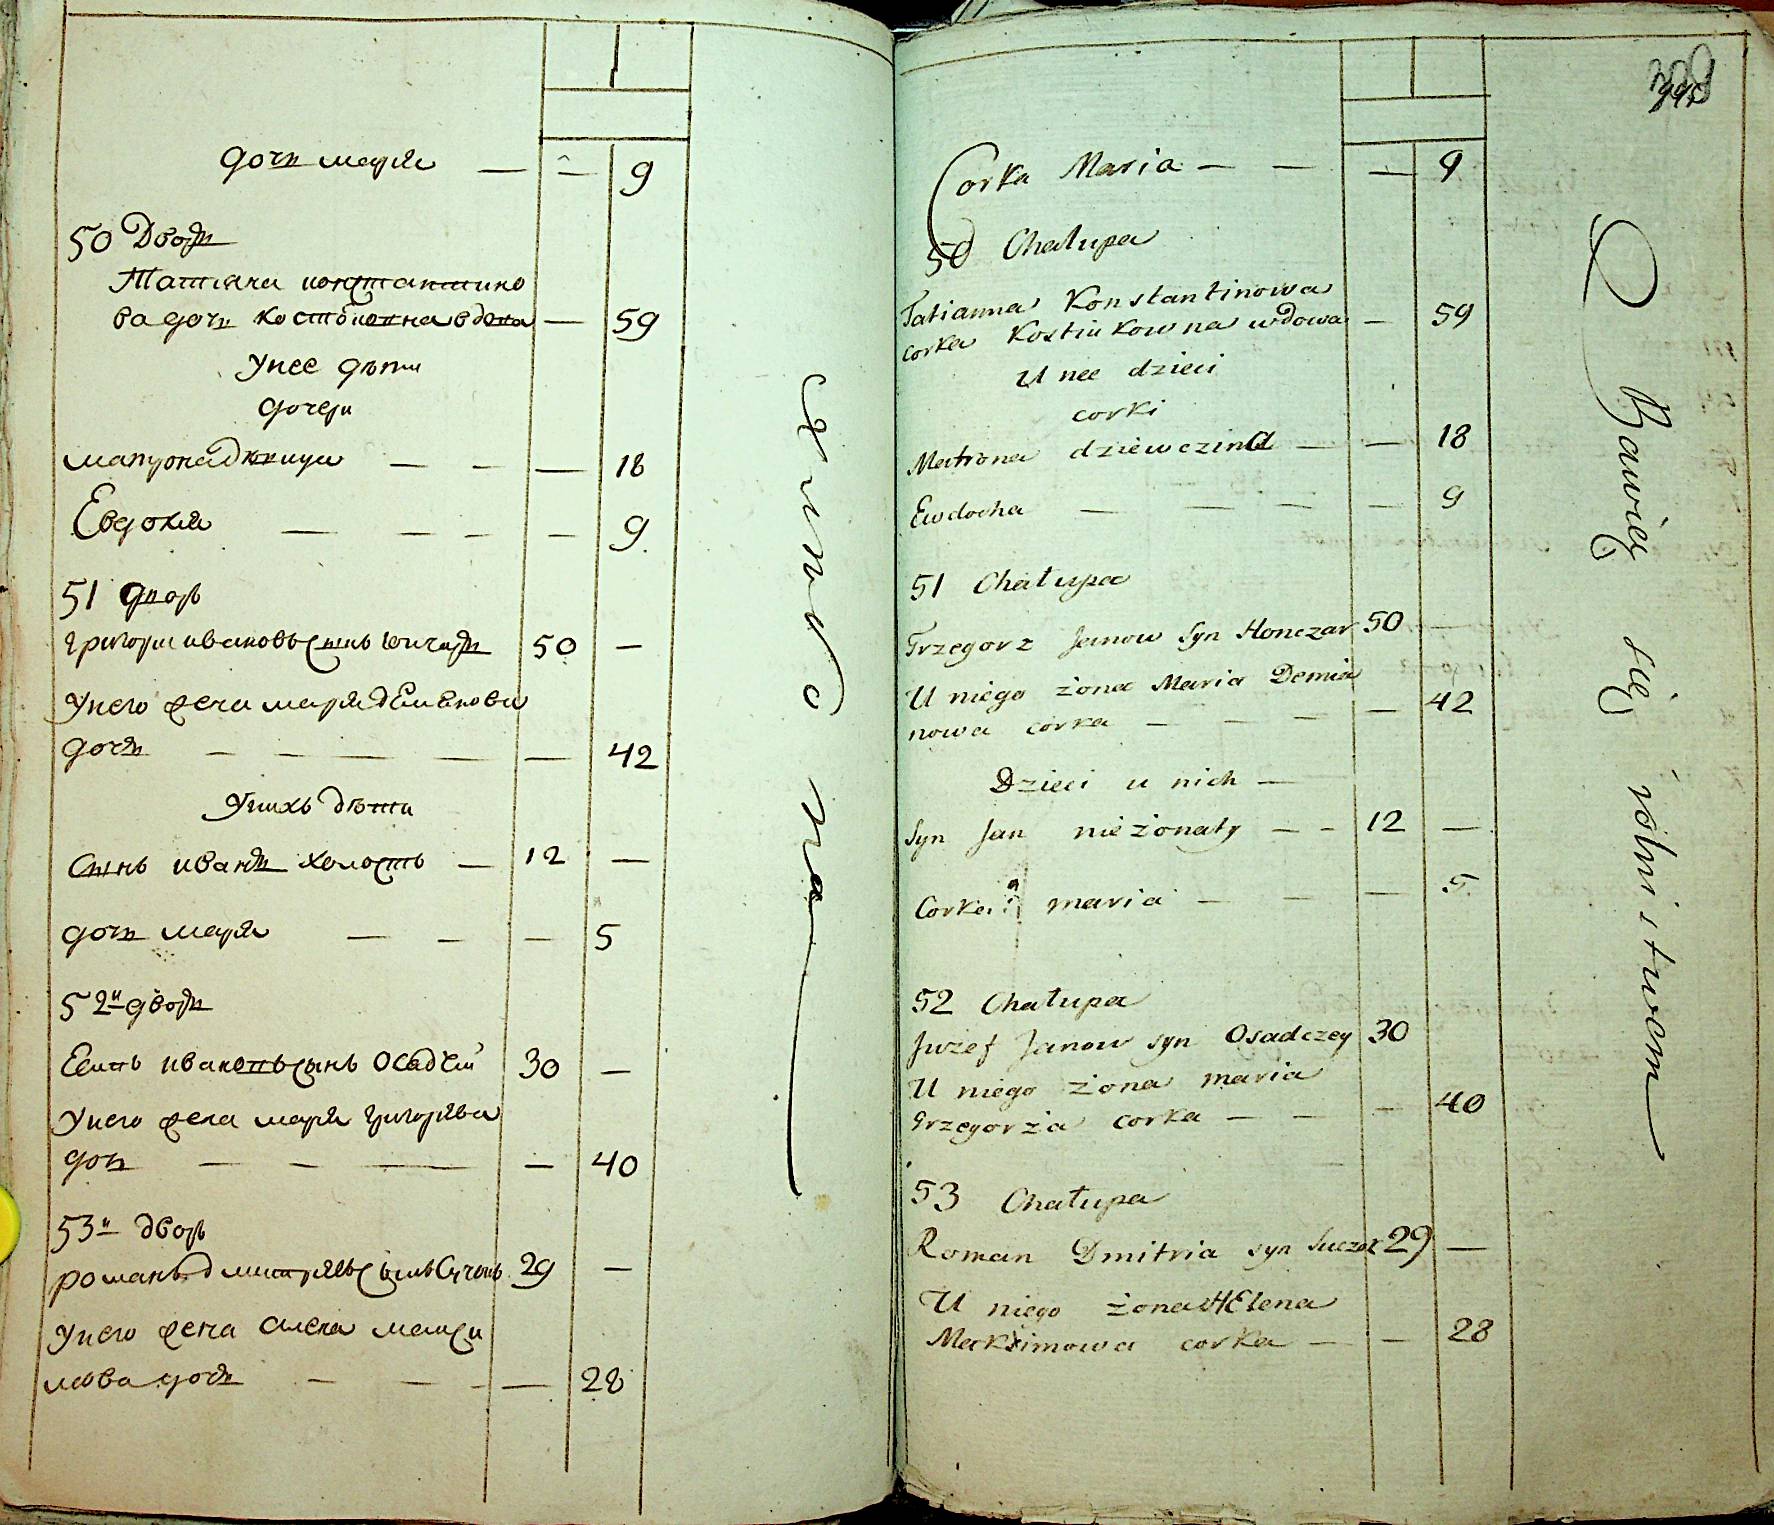 дочь марія — — 9
50 дворъ
Татіяна константино
ва дочь костюковна вдова — 59
У нее дѣти
дочери
матрона дѣвица — — — 18
Евдокія — — — — 9
51 дворъ
григорій ивановъ сынъ гончаръ 50 —
У него жена марія демянова
дочь — — — — — 42
У нихъ дѣти
сынъ иванъ холостъ — 12 —
дочь марія — — — 5
52й дворъ
ивановъ сынъ осадчей 30 —
У него жена марія григорьева
дочь — — — — 40
53й дворъ
романъ дмитріевъ сынъ 29 —
У него жена алена макси
мова дочь — — — — 28
Corka Maria — — — 9
50 Chałupa
Tatianna Konstantinowa
corka Kostiukowna wdowa — 59
U nee dzieci
corki
Matrona dziewczina — — 18
Ewdocha — — — — 9
51 Chałupa
Grzegorz Janow syn Honczar 50 —
U niego żona Maria Demia
nowa corka — — — — 42
Dzieci u nich —
Syn Jan nieżonaty — — 12 —
Corka maria — — — 5
52 Chałupa
Juzef Janow syn Osadczey 30
U niego żona maria
Grzegorza corka — — — 40
53 Chałupa
Roman Dmitria syn 29 —
U niego żona HElena
Maksimowa corka — — 28
Bawią się rolnistwem